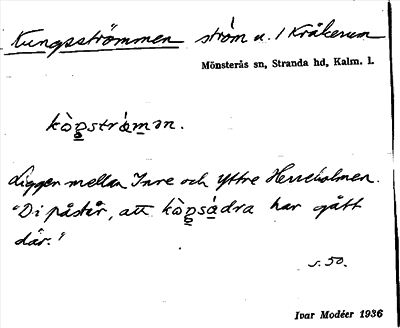 Kungsströmmen ström u. 1 Kråkerum
Mönsterås sn, Stranda hd, Kalm. l.
kòŋstrǿmən.
Ligger mellan Inre och Yttre Herreholmen.
"Di påstår, att kòŋsådra har gått
där."
s. 50.
Ivar Modéer 1936